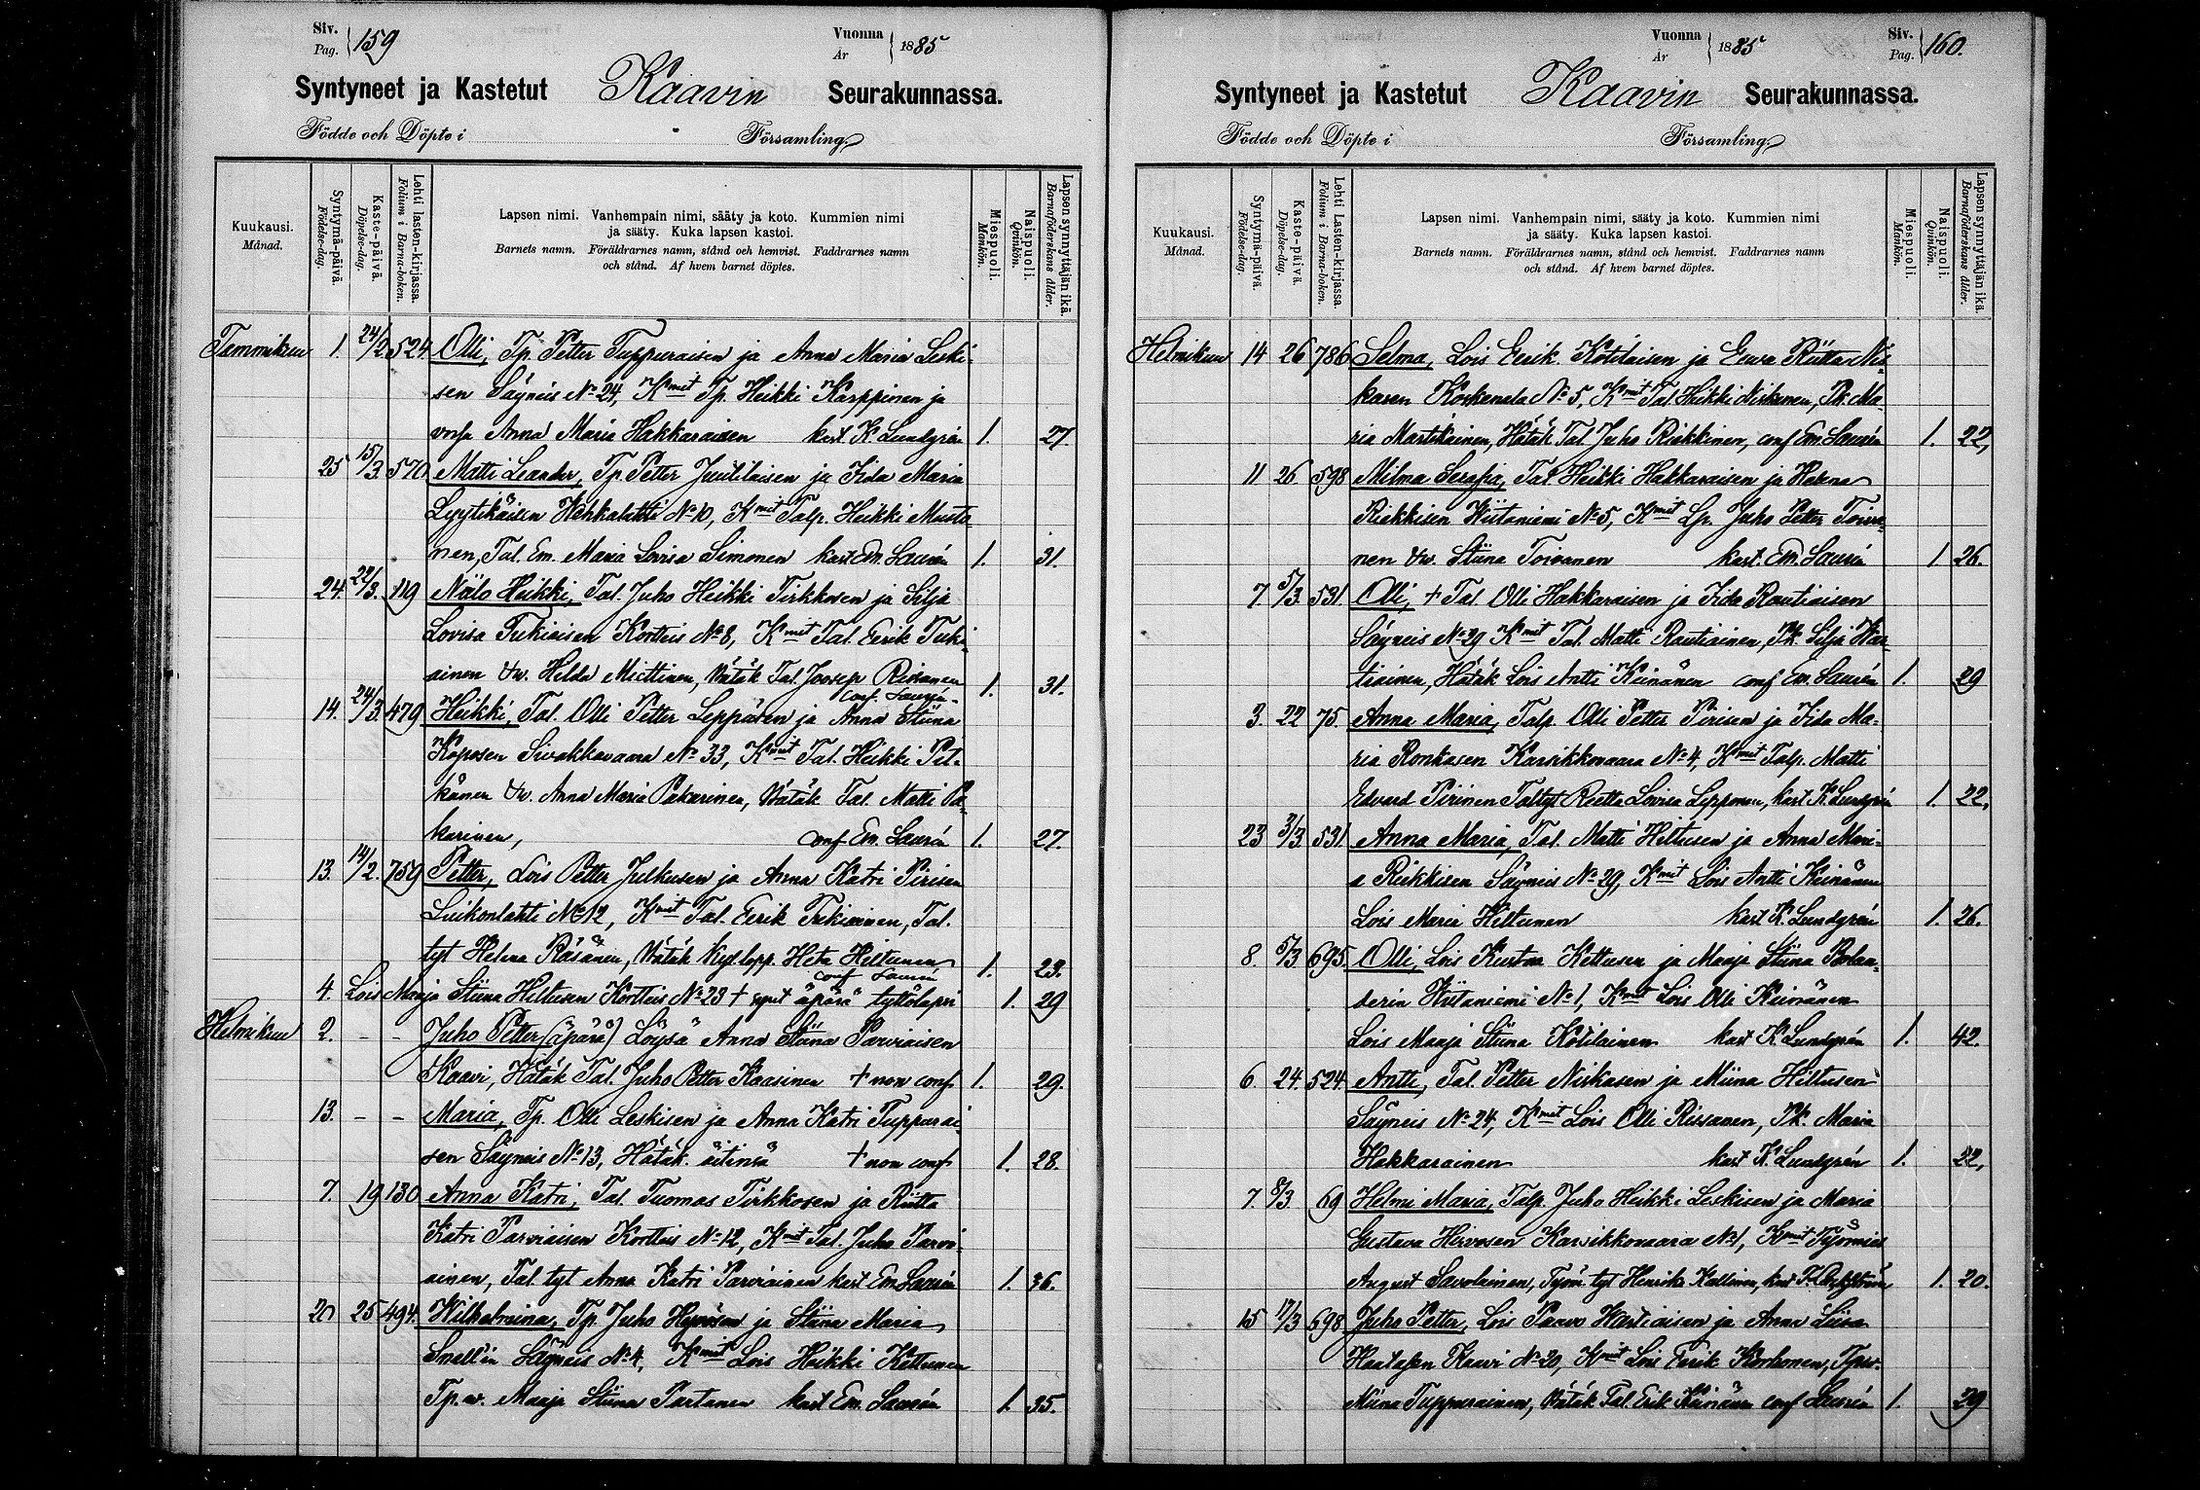 Siv. Pag. 159
Vuonna År 1885
Syntyneet ja Kastetut Kaavin Seurakunnassa.
Födde och Döpte i Församling.
Kuukausi. Månad.
Syntymä-päivä. Födelse-dag.
Kaste-päivä. Döpelse-dag.
Lehti lasten-kirjassa. Folium i Barna-boken.
Lapsen nimi. Vanhempain nimi, sääty ja koto. Kummien nimi
ja sääty. Kuka lapsen kastoi.
Barnets namn. Föräldrarnes namn, stånd och hemvist. Faddrarnes namn
och stånd. Af hvem barnet döptes.
Miespuoli. Mankön.
Naispuoli. Qvinkön.
Lapsen synnyttäjän ikä. Barnaföderskans ålder.
Tammikuu 1. 24/2 524 Olli, Tp. Petter Tuppuraisen ja Anna Maria Leski-
sen Säyneis No 24, Kmit Tp. Heikki Karppinen ja
vmsa Anna Maria Hakkaraisen kast K. Lundgrén 1. 27.
25 15/3. 570 Matti Leander, Tp. Petter Juutilaisen ja Iida Maria
Lyytikäisen Wehkalahti No 10, Kmit Talp. Heikki Musto-
nen, Tal. Em. Maria Lovisa Simonen kast Em. Laurén 1. 31.
24. 22/3. 119 Niilo Heikki, Tal. Juho Heikki Tirkkosen ja Silja
Lovisa Tukiaisen Kortteis No 8, Kmit Tal. Eerik Tuki-
ainen & w. Helda Miettinen, Hätäk Tal. Joosep Rissanen
conf. Laurén 1. 31.
14. 24/3. 479 Heikki, Tal. Olli Petter Leppäsen ja Anna Stiina
Koposen Sivakkavaara No 33, Kmit Tal. Heikki Pit-
känen & w. Anna Maria Pakarinen, Hätäk Tal. Matti Pa-
karinen, conf. Em. Laurén 1. 27.
13. 14/2. 759 Petter, Lois Petter Julkusen ja Anna Katri Pirisen
Luikonlahti No 12, Kmit Tal. Eerik Tukiainen, Tal.
tyt Helena Räsänen, Hätäk Kyl. lepp. Heta Hiltunen
conf Laurén 1. 23.
4. Lois Maaja Stiina Hiltusen Kortteis No 23 + synt äpärä tyttölapsi 1. 29
Helmikuu 2. - - Juho Petter (äpärä) Löysä Anna Stiina Parviaisen
Kaavi, Hätäk Tal. Juho Petter Kaasinen + non conf 1. 29.
13. - - Maria, Tp. Olli Leskisen ja Anna Katri Tuppurai-
sen Säyneis No 13, Hätäk. äitinsä + non conf 1. 28.
7. 19 130 Anna Katri, Tal. Tuomas Tirkkosen ja Riitta
Katri Parviaisen Kortteis No 12, Kmit Tal. Juho Parvi-
ainen, Tal. tyt Anna Katri Parviainen kast Em Laurén 1. 36.
20 25 494. Wilhelmina, Tp. Juho Hyvösen ja Stiina Maria
Snellin Säyneis No 4, Kmit Lois Heikki Kettunen
Tp. w. Maaja Stiina Partanen kast Em. Laurén 1. 35.
Vuonna År 1885
Siv. Pag. 160.
Syntyneet ja Kastetut Kaavin Seurakunnassa.
Födde och Döpte i Församling.
Kuukausi. Månad.
Syntymä-päivä. Födelse-dag.
Kaste-päivä. Döpelse-dag.
Lehti Lasten-kirjassa. Folium i Barna-boken.
Lapsen nimi. Vanhempain nimi, sääty ja koto. Kummien nimi
ja sääty. Kuka lapsen kastoi.
Barnets namn. Föräldrarnes namn, stånd och hemvist. Faddrarnes namn
och stånd. Af hvem barnet döptes.
Miespuoli. Mankön.
Naispuoli. Qvinkön.
Lapsen synnyttäjän ikä. Barnaföderskans ålder.
Helmikuu 14 26 786 Selma, Lois Eerik Kotilaisen ja Eeva Riitta Nis-
kasen Koskenala No 5, Kmit Tal. Heikki Niskanen, Pk. Ma-
ria Martikainen, Hätäk Tal Juho Riekkinen, conf Em Laurén 1. 22,
11 26 598 Milma Serafia, Tal. Heikki Hakkaraisen ja Helena
Riekkisen Wiitaniemi No 5, Kmit Lp. Juho Petter Toiva-
nen & w. Stiina Toivanen kast. Em. Laurén 1 26.
7. 5/3 531. Olli, + Tal. Olli Hakkaraisen ja Iida Rautiaisen
Säyneis No 29 Kmit Tal. Matti Rautiainen, Pk. Silja Har-
tiainen, Hätäk Lois Antti Keinänen conf Em. Laurén 1. 29
3. 22 75. Anna Maria, Talp. Olli Petter Pirisen ja Iida Ma-
ria Ronkasen Karsikkovaara No 4, Kmit Talp. Matti
Edvard Pirinen Tal tyt Reetta Lovisa Lepponen, kast K. Lundgrén 1. 22,
23 3/3. 531. Anna Maria, Tal. Matti Hiltusen ja Anna Mari-
a Riekkisen Säyneis No 29, Kmit Lois Antti Keinänen
Lois Maria Hiltunen kast K. Lundgrén 1. 26.
8. 5/3 695. Olli, Lois Kustaa Kettusen ja Maaja Stiina Bolan-
derin Wiitaniemi No 1, Kmit Lois Olli Keinänen
Lois Maaja Stiina Kotilainen kast K Lundgrén 1. 42.
6 24. 524. Antti, Tal. Petter Niskasen ja Miina Hiltusen
Säyneis No 24, Kmit Lois Olli Rissanen, Pk. Maria
Hakkarainen kast K. Lundgrén 1. 22,
7. 8/3. 69 Helmi Maria, Talp. Juho Heikki Leskisen ja Maria
Gustava Hirvosen Karsikkovaara No 1, Kmit Työmies
August Savolainen, Työm. tyt Henrika Kallinen, kast 1. 20.
15 17/3 698 Juho Petter, Lois Paavo Wartiaisen ja Anna Liisa
Kaavi No 20, Kmit Lois Eerik Korhonen, Tp w.
Miina Tuppurainen, Hätäk Tal. Erik Keinänen conf Laurén 1. 29